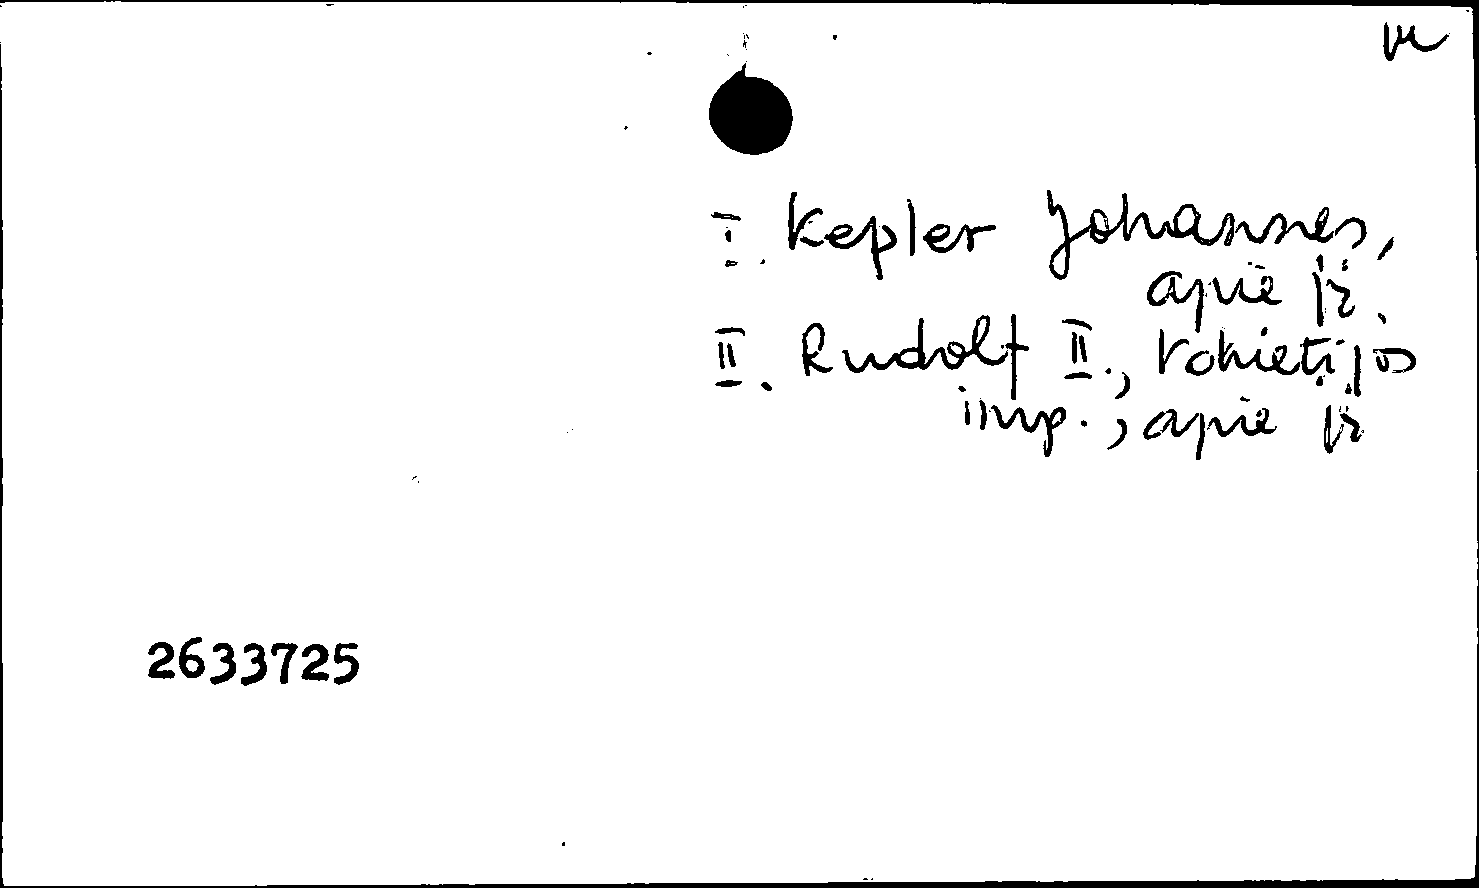 I. Kepler Johannes,
apie jį.
II. Rudolf II., Vokietijos
imp., apie jį
2633725